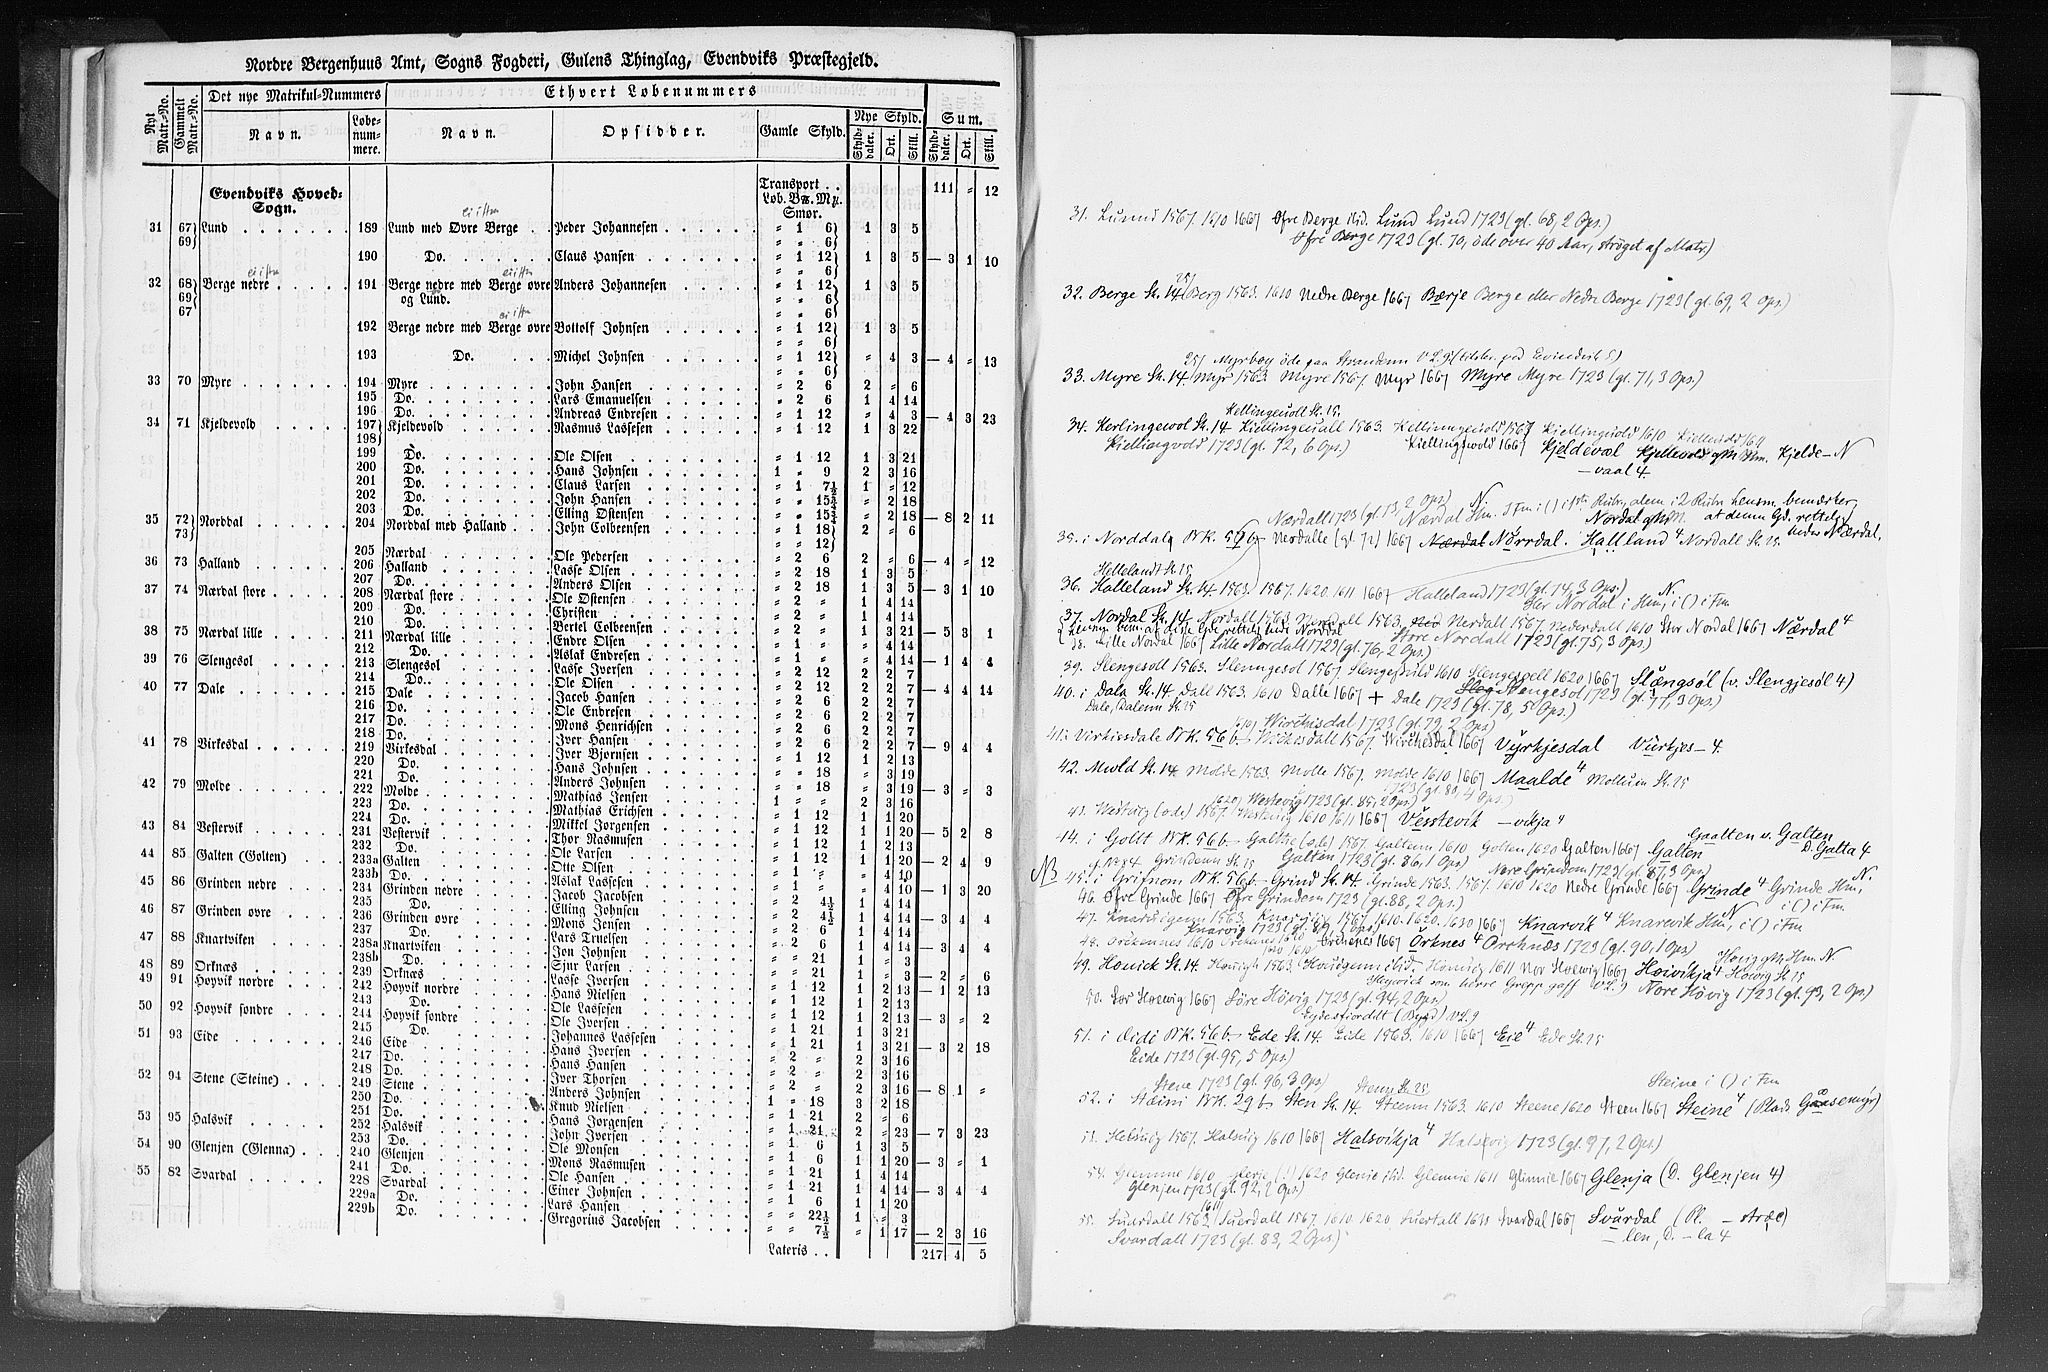 Nordre Bergenhuus Amt, Sogns Fogderi, Gulens Thinglag, Evendviks Præstegjeld.
Nyt Matr.-No. Gammelt Matr.-No. Det nye Matrikul-Nummers Ethvert Løbenummers
Navn. Løbe-num-mere. Navn. Opsidder. Gamle Skyld. Nye Skyld. Sum.
Skyld-daler. Ort. Skill. Skyld-daler. Ort. Skill.
Evendviks Hoved-Sogn. Transport . . 111 " 12
Løb. Bℳ. Mℳ. Smør.
31 67 Lund 189 Lund med Øvre Berge Peder Johannesen " 1 6 1 3 5
69 " " 6
190 Do. Claus Hansen " 1 12 1 3 5 — 3 1 10
" " 6
32 68 Berge nedre 191 Berge nedre med Berge øvre Anders Johannesen " 1 12 1 3 5
69 og Lund. " " 6
67 " " 6
192 Berge nedre med Berge øvre Bottolf Johnsen " 1 12 1 3 5
" " 6
193 Do. Michel Johnsen " 1 12 " 4 3 — 4 " 13
" " 6
33 70 Myre 194 Myre John Hansen " 2 6 2 " 6
195 Do. Lars Emanuelsen " 2 6 1 4 14
196 Do. Andreas Endresen " 1 12 " 4 3 — 4 3 23
34 71 Kjeldevold 197 Kjeldevold Rasmus Lassesen " 1 12 1 3 22
198
199 Do. Ole Olsen " 1 12 1 3 21
200 Do. Hans Johnsen 1 " 9 2 3 16
201 Do. Claus Larsen " 1 7½ 1 " 12
202 Do. John Hansen " " 15¾ " 2 18
203 Do. Elling Østensen " " 15¾ " 2 18 — 8 2 11
35 72 Norddal 204 Norddal med Halland John Colbeensen " 1 18 2 " 6
73 " " 12
205 Nærdal Ole Pedersen " 2 6 2 " 6 — 4 " 12
36 73 Halland 206 Halland Lasse Olsen " 2 18 1 3 5
207 Do. Anders Olsen " 2 18 1 3 5 — 3 1 10
37 74 Nærdal store 208 Nærdal store Ole Østensen " 2 " 1 4 14
209 Do. Christen " 2 " 1 4 14
210 Do. Bertel Colbeensen " 2 " 1 3 21 — 5 3 1
38 75 Nærdal lille 211 Nærdal lille Endre Olsen " 1 " " 4 14
212 Do. Aslak Endresen " 1 " " 4 14 — 1 4 4
39 76 Slengesol 213 Slengesol Lasse Iversen " 2 12 2 2 7
214 Do. Ole Olsen " 2 12 2 2 7 — 4 4 14
40 77 Dale 215 Dale Jacob Hansen " 2 6 2 2 7
216 Do. Ole Endresen " 2 6 2 2 7
217 Do. Mons Henrichsen " 2 6 2 2 7
218 Do. Iver Hansen " 2 6 2 2 7 — 9 4 4
41 78 Virkesdal 219 Virkesdal Iver Bjørnsen " 1 12 1 2 13
220 Do. Hans Johnsen " " 18 " 3 19
221 Do. Anders Johnsen " " 18 " 3 19 — 3 " 3
42 79 Molde 222 Molde Mathias Jensen 1 " " 2 3 16
223 Do. Mathias Erichsen " 1 12 1 1 20
224 Do. Mikkel Jørgensen " 1 12 1 1 20 — 5 2 8
43 84 Vestervik 231 Vestervik Thor Rasmusen " 1 12 1 2 13
232 Do. Ole Larsen " 1 12 1 1 20 — 2 4 9
44 85 Galten (Golten) 233a Galten Otte Olsen " 1 " " 4 10
233b Do. Aslak Lassesen " 1 " " 4 10 — 1 3 20
45 86 Grinden nedre 234 Grinden nedre Jacob Jacobsen " 2 4½ 1 4 14
235 Do. Elling Johnsen " 2 4½ 1 4 14 — 3 4 4
46 87 Grinden øvre 236 Grinden øvre Mons Jensen " 2 6 1 4 14
237 Do. Lars Truelsen " 2 6 1 4 14 — 3 4 4
47 88 Knartviken 238a Knartviken Jon Johnsen " " 21 1 " 3
238b Do. Sjur Larsen " " 21 1 " 3 — 2 " 6
48 89 Orknæs 239 Orknæs Lasse Iversen " 1 12 1 2 13 — 1 2 13
49 91 Høyvik nordre 242 Høyvik nordre Hans Nielsen " 1 12 1 2 13
243 Do. Ole Lassesen " 1 12 1 2 13 — 3 " 2
50 92 Høyvik søndre 244 Høyvik søndre Ole Iversen " 1 21 1 3 21
245 Do. Johannes Lassesen " 1 21 1 3 21 — 3 2 18
51 93 Eide 246 Eide Hans Iversen " 2 " 2 3 16
247 Do. Hans Hansen " 2 " 2 3 16
248 Do. Iver Thorsen " 2 " 2 3 16 — 8 1 "
52 94 Stene (Steine) 249 Stene Anders Johnsen 1 " 18 3 2 18
250 Do. Knud Nielsen " 1 21 2 " 6
251 Do. Hans Jørgensen " 1 21 2 " 23 — 7 3 23
53 95 Halsvik 252 Halsvik John Iversen " 1 6 1 3 5
253 Do. Ole Monsen " 1 6 1 1 20 — 3 " 1
54 90 Glenjen (Glenna) 240 Glenjen Mons Rasmusen " 1 21 1 4 14
241 Do. Ole Hansen " 1 21 1 4 14 — 3 4 4
55 82 Svardal 228 Svardal Einer Johnsen " 1 6 1 1 20
229a Do. Lars Hansen " " 22½ 1 " 3
229b Do. Gregorius Jacobsen " " 7½ " 1 17 — 2 3 16
Lateris . . 217 4 5
31. Lusund 1567. 1610 1667 Øfre Berge ibid. Lund Lund 1723 (gl. 68, 2 Ops.)
Øfre Berge 1723 (gl. 70, öde over 40 Aar, strøget af Matr.)
32. Berge Sk. 14 Berg 1563. 1610 Nedre Berge 1667 Bærje Berge eller Nedre Berge 1723 (gl. 69, 2 Ops.)
33. Myre Sk. 14 Myr 1563 Myre 1567. Myr 1667 Myre Myre 1723 (gl. 71, 3 Ops.)
Kellingeuoll Sk. 15.
34. Kerlingewol Sk. 14 Kiellingeuall 1563. Kellinngeuold 1567 Kiellinguold 1610
Kiellingvold 1723 (gl. 72, 6 Ops.) Kiellingswold 1667 Kjeldevæl Kjellevold Hm. Kjelde- N
—vaal 4.
Nærdall 1723 (gl. 73, 2 Ops.)
35. i Norddalq BK. 56b Nerdalle (gl. 72) 1667 Nærdal Nørrdal. Halland 4 Nordall Sk. 15.
Hellelandt Sk. 15
36. Halleland Sk. 14 1563. 1567. 1620 1611 1667 Halleland 1723 (gl. 74, 3 Ops.)
37. Nordal Sk. 14 Nordall 1563, Nerdall 1567. Nederdall 1610 Stor Nordal 1667 Nærdal 4
Store Nordall 1723 (gl. 75, 3 Ops.)
38. Lille Nordal 1667 Lille Nordall 1723 (gl. 76, 2 Ops.)
39. Slengesoll 1563. Slenngesol 1567. Slengesuld 1610 Slengespell 1620 1667 Slængsøl (v. Slengjesøl 4)
Slengesol 1723 (gl. 77, 3 Ops.)
40. i Dala Sk. 14. Dall 1563. 1610 Dalle 1667 + Dale 1723 (gl. 78, 5 Ops.)
Dale, Dalenn Sk. 15
Wirchisdal 1723 (gl. 79, 2 Ops.)
41. i Virkisdale BK. 56b Wirchesdall 1567. Wirchesdal 1667 Vyrkjesdal Vürkjes- 4.
42. Mwld Sk. 14. Molde 1563. Molle 1567. Molde 1610 1667 Maalde 4 Mollum Sk. 15
1723 (gl. 80, 4 Ops.)
Westevig 1723 (gl. 85, 2 Ops.)
43. Westuig (øde) 1567. Westuig 1610 1611 1667 Vesstevik —vikja 4
44. i Gollt BK. 56b Galthe (øde) 1567. Galtenn 1610 Golten 1620 Galten 1667 Galten
Gaalten v. Galten D. Galta 4
Grindenn Sk. 15 Galten 1723 (gl. 86, 1 Ops.) Nore Grinden 1723 (gl. 87, 3 Ops.)
NB 45. i Grifnom BK. 56b Grind Sk. 14. Grinde 1563. 1567. 1610 1620 Nedre Grinde 1667 Grinde 4 Grinde Hm., N.
46. Øfre Grinde 1667 Øfre Grinden 1723 (gl. 88, 2 Ops.) i () i Fm
47. Knaruigenn 1563. Knaruig 1567. 1610. 1620. 1630 1667 Knarvik 4 Knarevik Hm, i () i Fm
Knarvig 1723 (gl. 89, 1 Ops.)
48. Orckennes 1610 Orckenes 1620 Orckenes 1667 Örknes 4 Orchnæs 1723 (gl. 90, 1 Ops)
49. Houick Sk. 14. Houigh 1563. Houigenn ibid. Houuig 1611 Nor Hoewig 1667 Høivikja 4 Høwig Sk. 15
Nore Høvig 1723 (gl. 93, 2 Ops.)
50. Sør Høewig 1667 Søre Høvig 1723 (gl. 94, 2 Ops.)
Eydesfiorddt (Bygd) VL. 9
51. i Æidi BK. 56b Ede Sk. 14. Eide 1563. 1610 1667 Eie 4 Ede Sk. 15
Eide 1723 (gl. 95, 5 Ops.)
Stene 1723 (gl. 96, 3 Ops) Stenn Sk. 15 Steine i () i Fm
52. i Stæini BK. 29b Sten Sk. 14. Steenn 1563. 1610 Steene 1620 Steen 1667 Steine 4 (Plads Gaasemyr)
53. Halsuig 1567. Halsuig 1610 1667 Halsvikja 4 Halsevig 1723 (gl. 97, 2 Ops.)
54. Glemme 1610 Glerje (!) 1620 Glenie ibid. Glennie 1611 Glinnie 1667 Glenja (D. Glenjen 4)
Glenjen 1723 (gl. 92, 2 Ops)
55. Suardall 1563 Suerdall 1567. 1610. 1620. Suertall 1611 Svardal 1667 Svårdal (Pl. — stræe)
Svardall 1723 (gl. 83, 2 Ops.) — len, D. — la 4